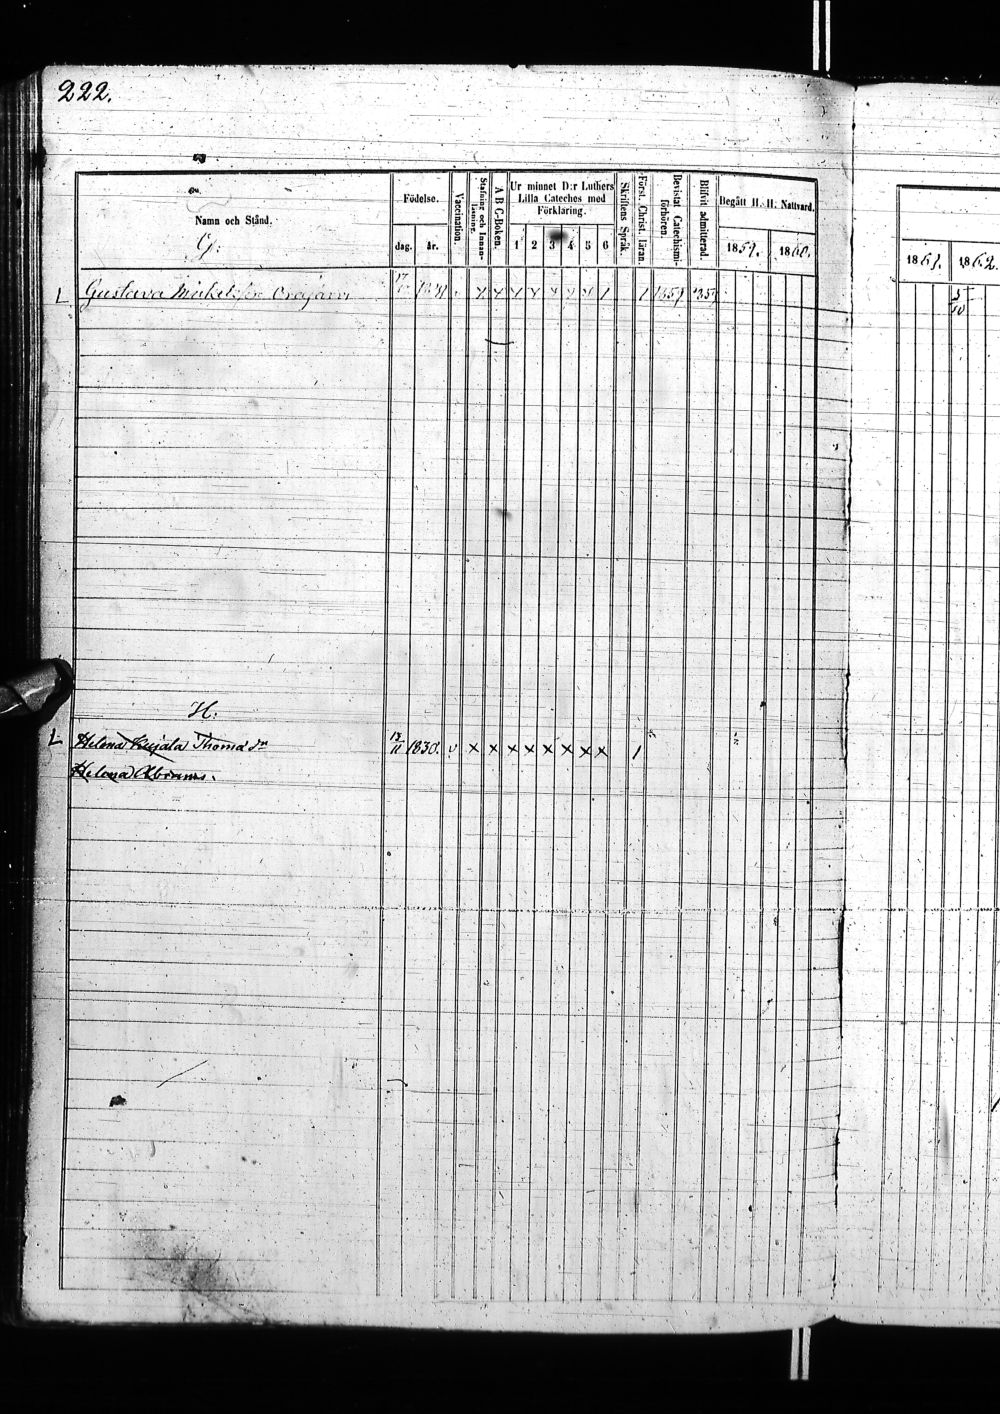 222.
Namn och Stånd.
G:
Födelse.
dag. år.
Vaccination.
Stafning och Innan-
läsning.
A B C-Boken.
Ur minnet D:r Luthers
Lilla Cateches med
Förklaring.
1 2 3 4 5 6
Skriftens Språk.
Först. Christ. läran.
Bevistat Catechismi-
förhören.
Blifvit admitterad.
Begått H. H: Nattvard.
1859. 1860.
1861. 1862.
L Gustava 1859
5/10
H:
L Helena Kujala Thomä dr 13/11 1830. v x x x x x x x x 1
Helena Abrams.